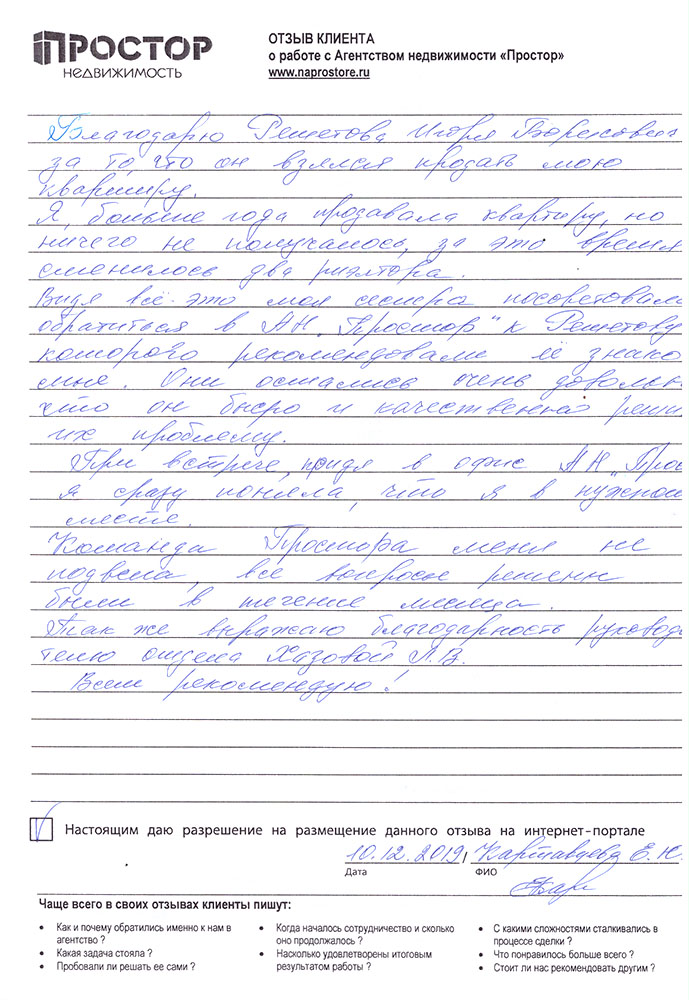 ПРОСТОР
НЕДВИЖИМОСТЬ
ОТЗЫВ КЛИЕНТА
о работе с Агентством недвижимости «Простор»
www.naprostore.ru
Благодарю Решетова Игоря Борисович
за то, что он взялся продать мою
квартиру.
Я, больше года продавала квартиру, но
ничего не получалось, за это время
сменилось два риэлтора.
Видя всё это моя сестра посоветовала
обратиться в АН „Простор" к Решетову
которого рекомендовали её знако
мые. Они остались очень довольн
что он быстро и качественно реши
их проблему.
При встрече, придя в офис АН „Прос
я сразу поняла, что я в нужном
месте.
Команда Простора меня не
подвела, все вопросы решены
были в течение месяца.
Так же выражаю благодарность руковод
телю отдела Хазовой Л.В.
Всем рекомендую!
Настоящим даю разрешение на размещение данного отзыва на интернет-портале
10.12.2019, Е. Ю.
Дата ФИО
Чаще всего в своих отзывах клиенты пишут:
• Как и почему обратились именно к нам в агентство ?
• Какая задача стояла ?
• Пробовали ли решать ее сами ?
• Когда началось сотрудничество и сколько оно продолжалось ?
• Насколько удовлетворены итоговым результатом работы ?
• С какими сложностями сталкивались в процессе сделки ?
• Что понравилось больше всего ?
• Стоит ли нас рекомендовать другим ?